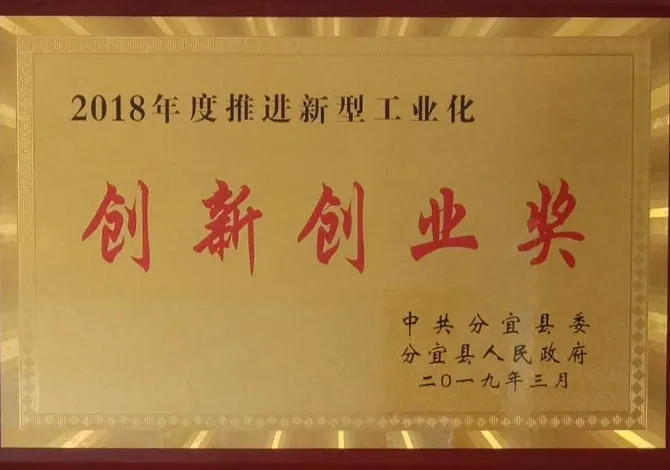 2018年度推进新型工业化
创新创业奖
中共分宜县委
分宜县人民政府
二〇一九年三月